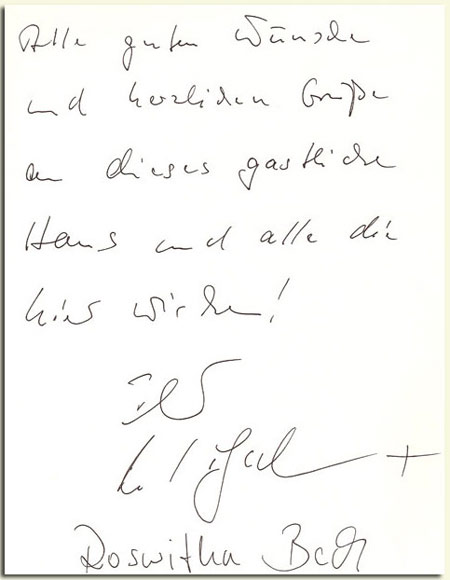 Alle guten Wünsche
und herzlichen Grüße
an dieses gastliche
Haus und alle die
hier wirken!
Ihr
+
Roswitha Bach